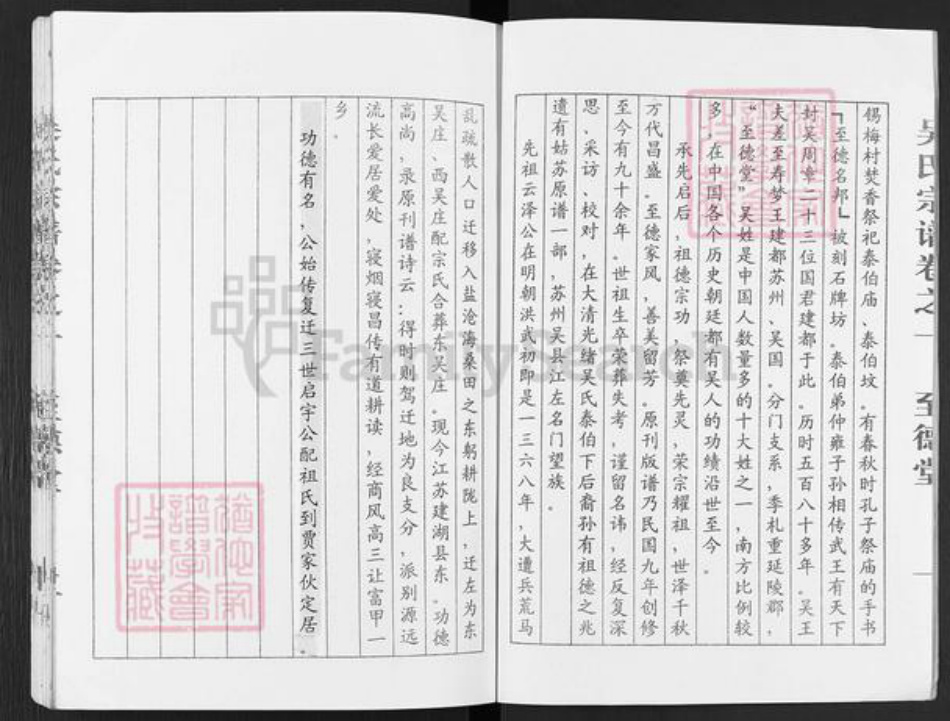 吴氏宗谱卷之一 至德堂
锡梅村焚香祭祀泰伯庙、泰伯坟。有春秋时孔子祭庙的手书
『至德名邦』被刻石牌坊。泰伯弟仲雍子孙相传武王有天下
封吴周章二十三位国君建都于此。历时五百八十多年。吴王
夫差至寿梦王建都苏州、吴国。分门支系，季札重延陵郡，
“至德堂”吴姓是中国人数量多的十大姓之一，南方比例较
多，在中国各个历史朝廷都有吴人的功绩沿世至今。
承先启后，祖德宗功，祭奠先灵，荣宗耀祖，世泽千秋
万代昌盛。至德家风，善美留芳。原刊版谱乃民国九年创修
至今有九十余年。世祖生卒荣葬失考，谨留名讳，经反复深
思、采访、校对，在大清光绪吴氏泰伯下后裔孙有祖德之兆
遗有姑苏原谱一部，苏州吴县江左名门望族。
先祖云泽公在明朝洪武初即是一三六八年，大遭兵荒马
乱疏散人口迁移入盐沧海桑田之东躬耕陇上，迁左为东
吴庄、西吴庄配宗氏合葬东吴庄。现今江苏建湖县东。功德
高尚，录原刊谱诗云：得时则驾迁地为良支分，派别源远
流长爰居爰处，寝烟寝昌传有道耕读，经商风高三让富甲一
乡。
功德有名，公始传复迁三世启宇公配祖氏到贾家伙定居。
FamilySearch